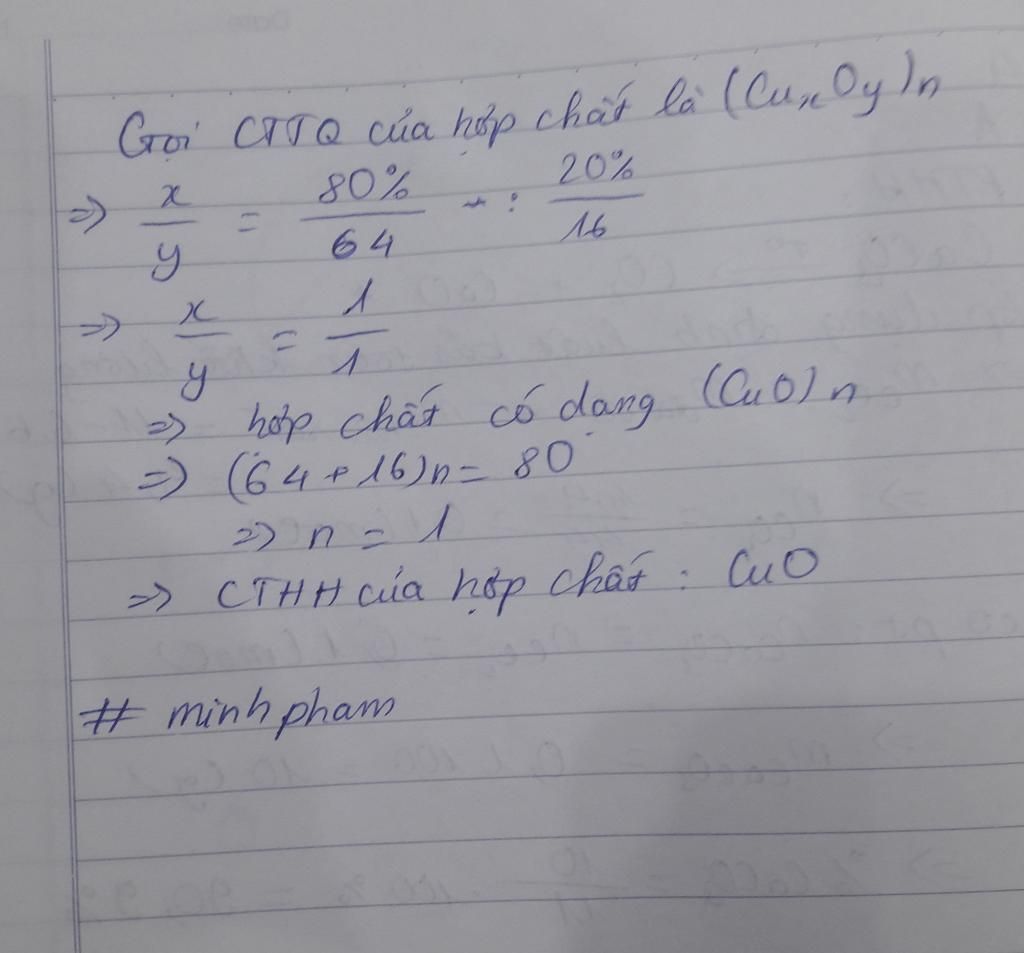 Gọi CTTQ của hợp chất là (CuxOy)n
=> x/y = 80%/64 : 20%/16
=> x/y = 1/1
=> hợp chất có dạng (CuO)n
=> (64 + 16)n = 80
=> n = 1
=> CTHH của hợp chất : CuO
# minh pham